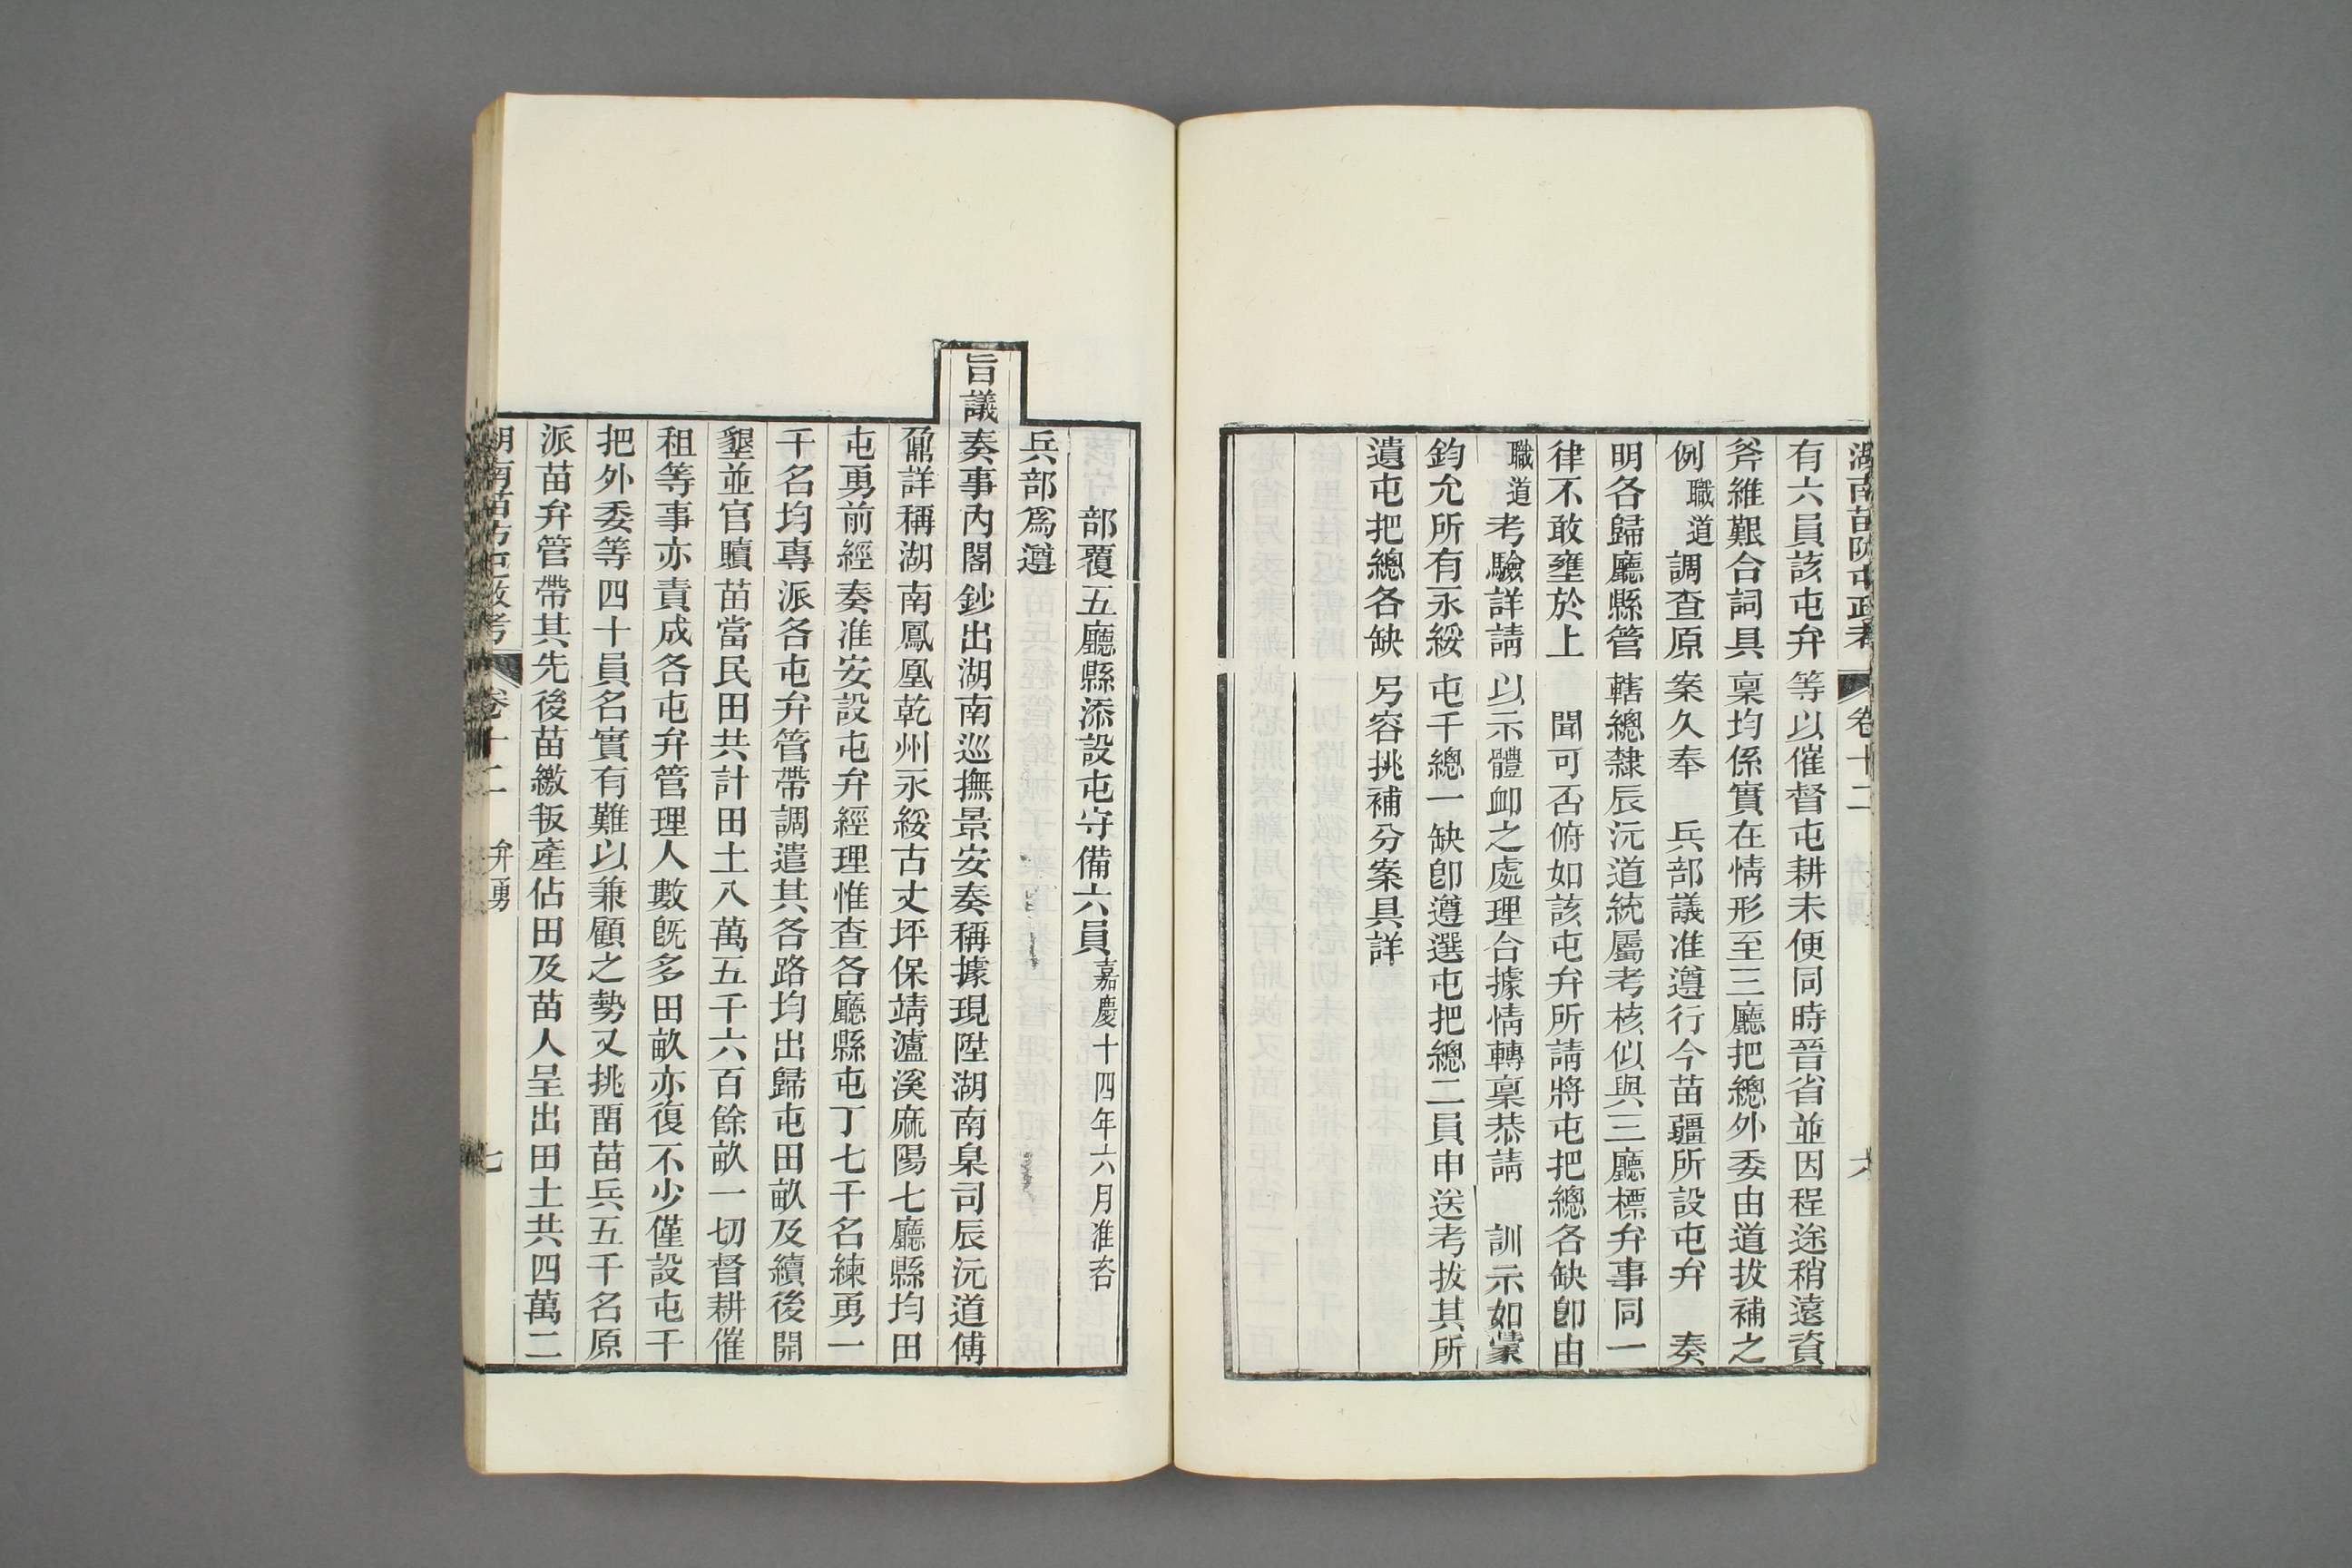 湖南苗防屯政考 卷十二 六
有六員該屯弁等以催督屯耕未便同時晉省並因程途稍遠資
斧維艱合詞具稟均係實在情形至三廳把總外委由道拔補之
例職道調查原案久奉 兵部議准遵行今苗疆所設屯弁 奏
明各歸廳縣管轄總隸辰沅道統屬考核似與三廳標弁事同一
律不敢壅於上 聞可否俯如該屯弁所請將屯把總各缺卽由
職道考驗詳請以示體卹之處理合據情轉稟恭請 訓示如蒙
鈞允所有永綏屯千總一缺卽遵選屯把總二員申送考拔其所
遺屯把總各缺另容挑補分案具詳
部覆五廳縣添設屯守備六員嘉慶十四年六月准咨
兵部爲遵
旨議奏事內閣鈔出湖南巡撫景安奏稱據現陞湖南臬司辰沅道傅
鼐詳稱湖南鳳凰乾州永綏古丈坪保靖瀘溪麻陽七廳縣均田
屯勇前經奏准安設屯弁經理惟查各廳縣屯丁七千名練勇一
千名均專派各屯弁管帶調遣其各路均出歸屯田畝及續後開
墾並官贖苗當民田共計田土八萬五千六百餘畝一切督耕催
租等事亦責成各屯弁管理人數旣多田畝亦復不少僅設屯千
把外委等四十員名實有難以兼顧之勢又挑畱苗兵五千名原
派苗弁管帶其先後苗繳叛產佔田及苗人呈出田土共四萬二
湖南苗防屯政考 卷十二 弁勇 七